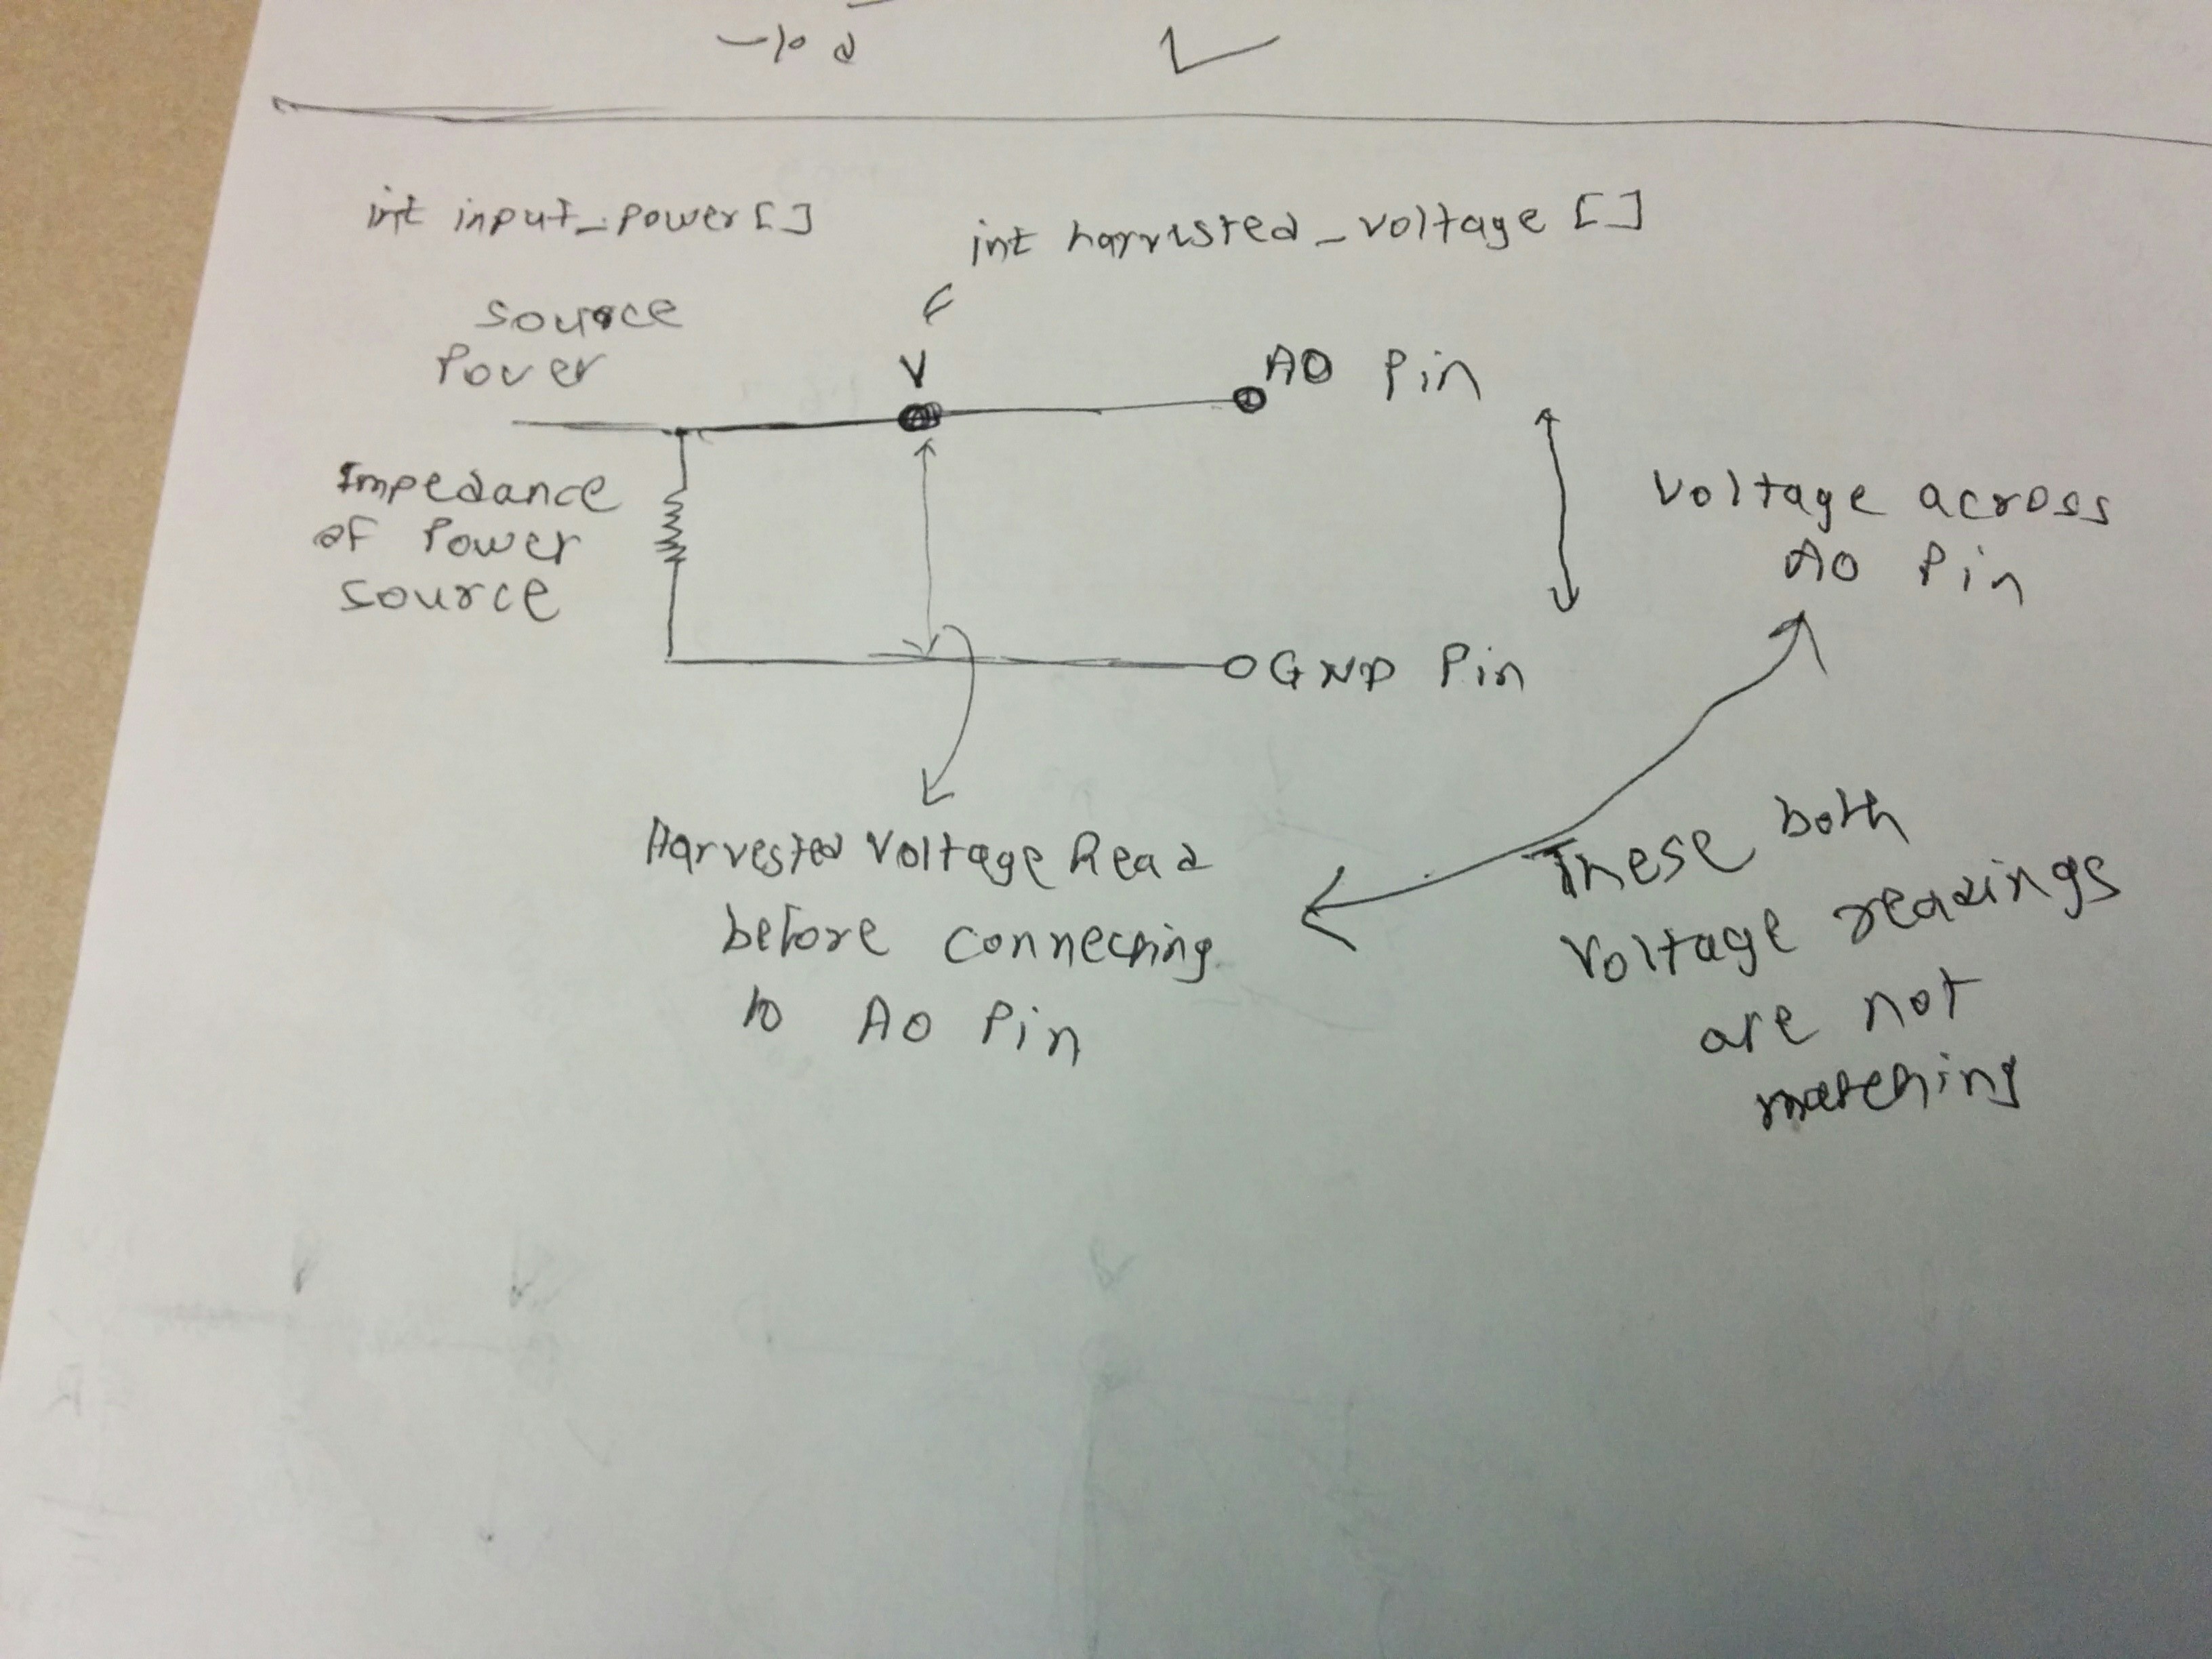 int input_power[]
int harvested_voltage []
source
Power
V
A0 Pin
Impedance
of Power
source
Voltage across
A0 Pin
GND Pin
Harvested Voltage Read
before connecting
to A0 Pin
These both
Voltage readings
are not
matching